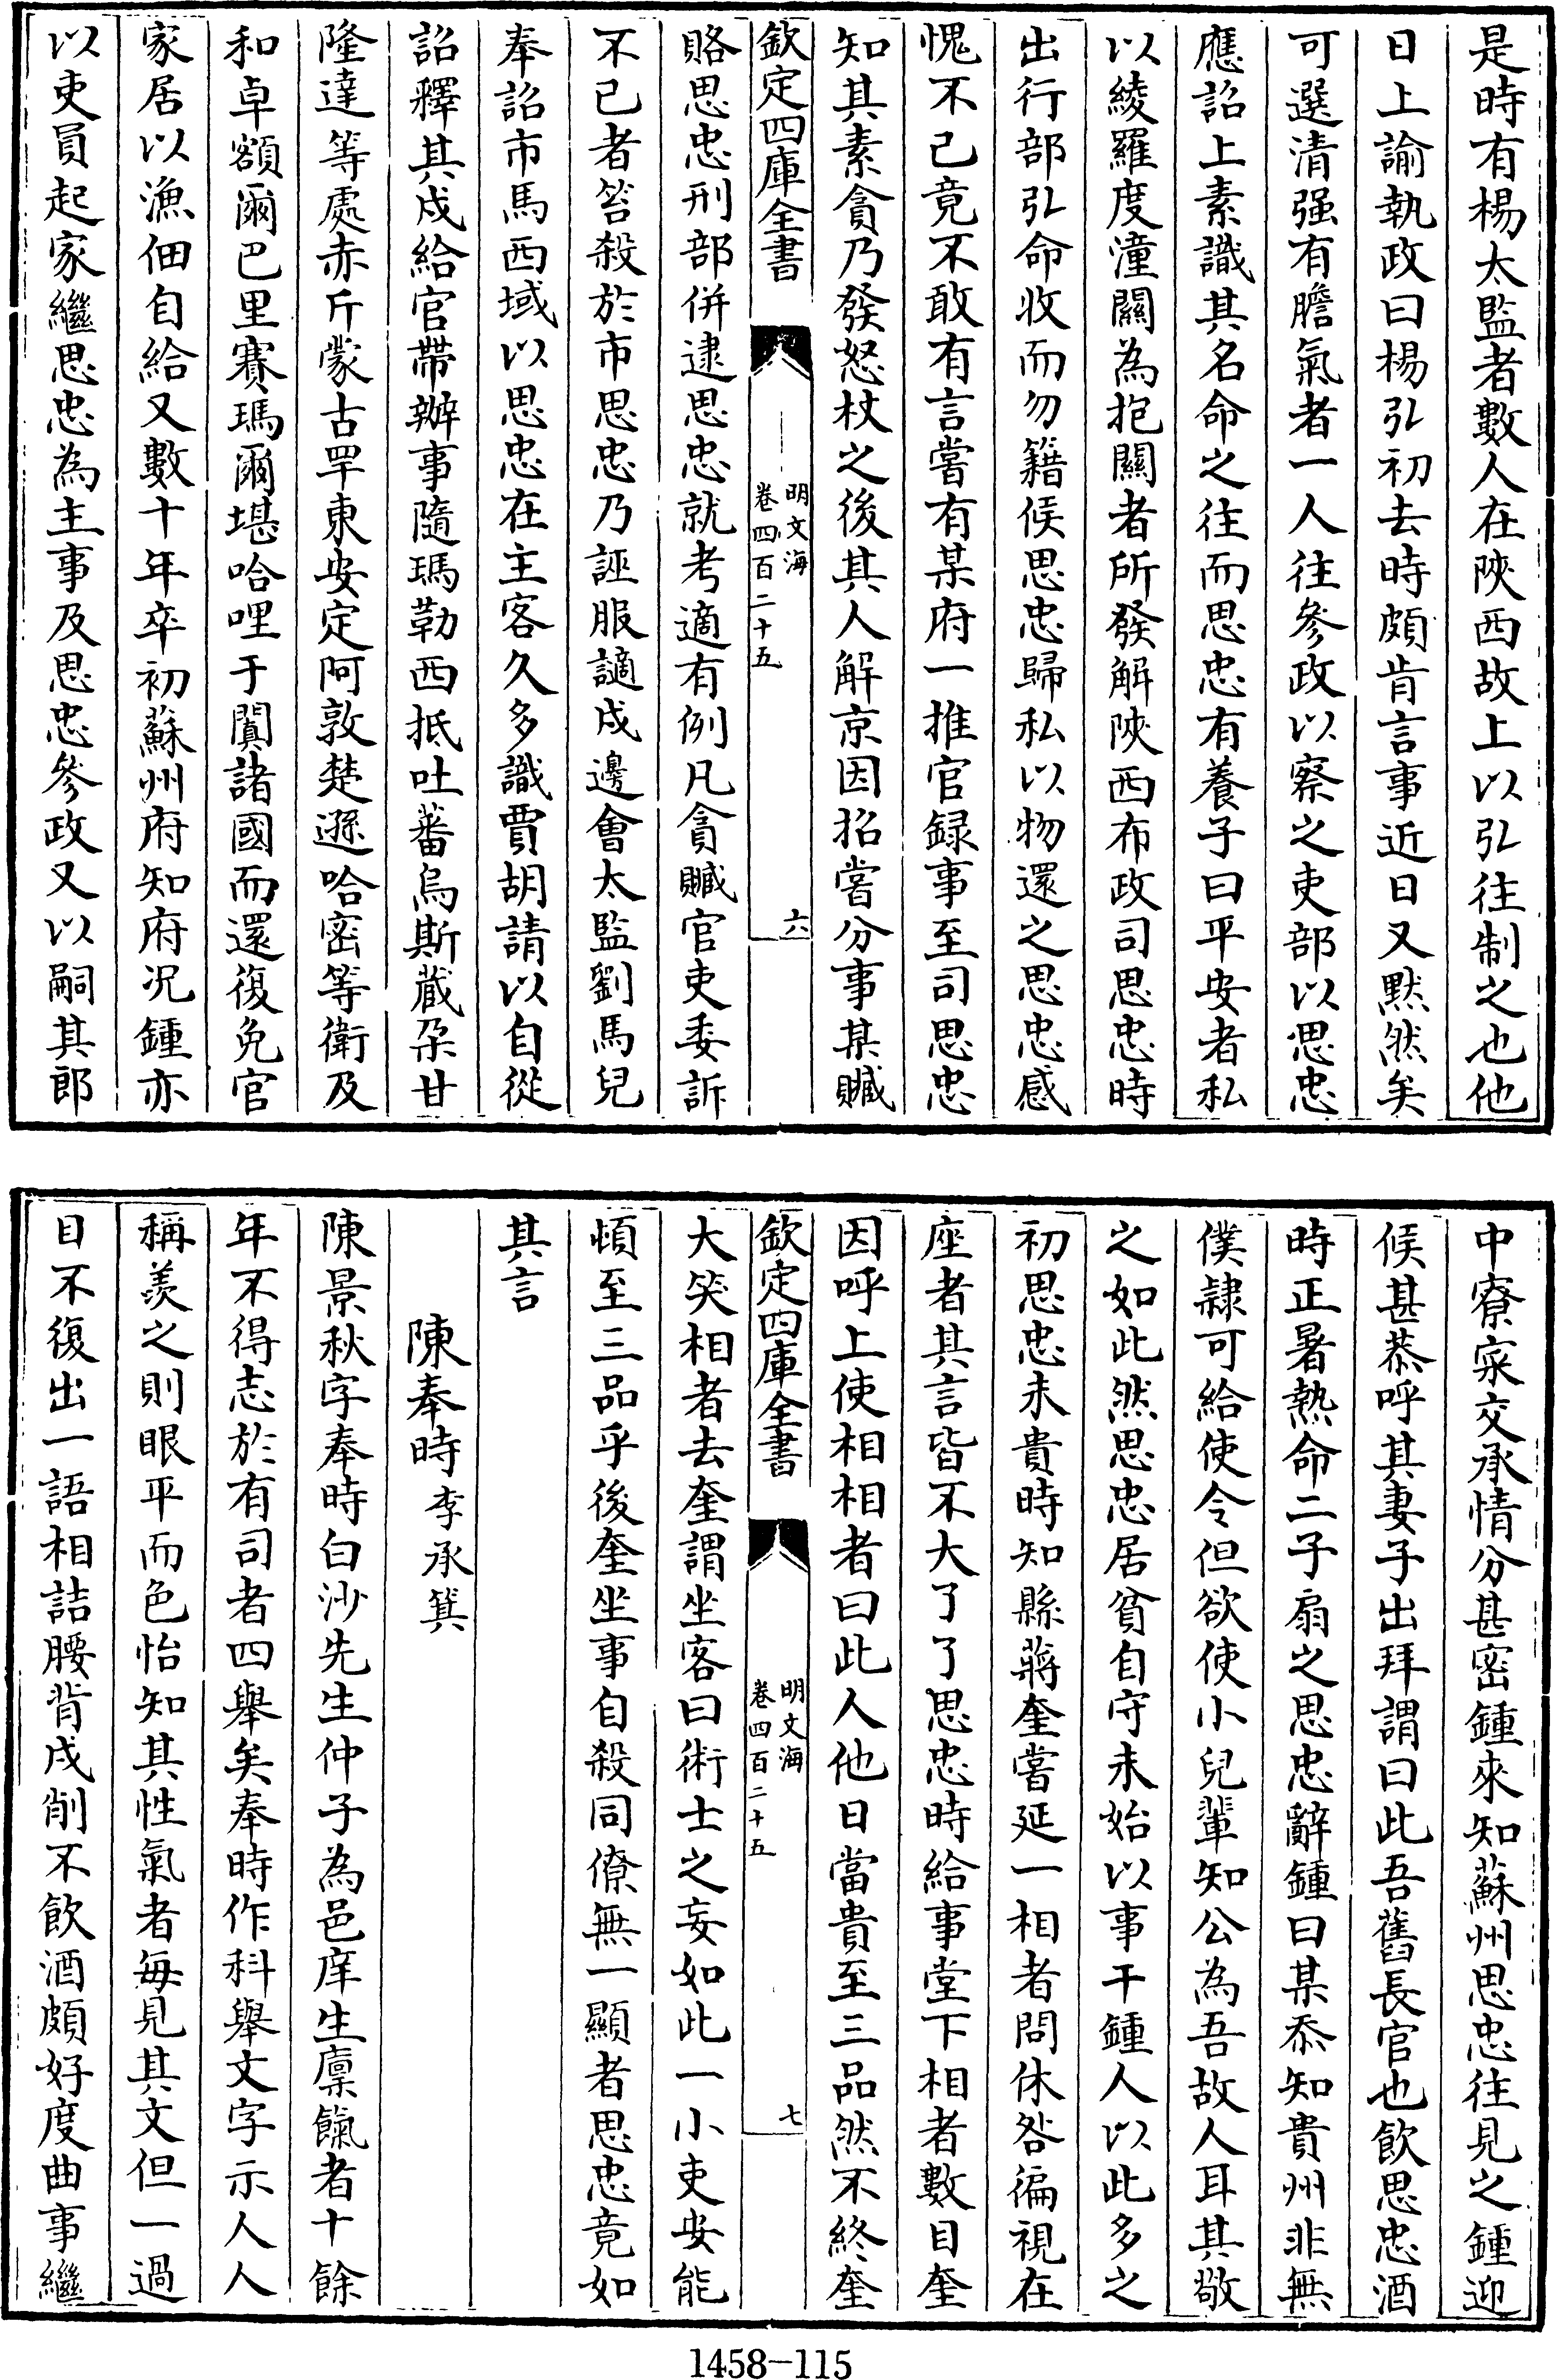 是時有楊太監者數人在陜西故上以弘往制之也他
日上諭執政曰楊弘初去時頗肯言事近日又默然矣
可選清强有膽氣者一人往參政以察之吏部以思忠
應詔上素識其名命之往而思忠有養子曰平安者私
以綾羅度潼關為抱關者所發解陜西布政司思忠時
出行部弘命收而勿籍候思忠歸私以物還之思忠感
愧不已竟不敢有言嘗有某府一推官録事至司思忠
知其素貪乃發怒杖之後其人解京因招嘗分事某贓
欽定四庫全書
明文海
卷四百二十五
六
賂思忠刑部併逮思忠就考適有例凡貪贓官吏委訴
不已者笞殺於市思忠乃誣服謫戍邊會太監劉馬兒
奉詔市馬西域以思忠在主客久多識賈胡請以自從
詔釋其戍給官帶辦事隨瑪勒西抵吐蕃烏斯藏朶甘
隆達等處赤斤蒙古罕東安定阿敦楚遜哈密等衛及
和卓額爾巴里賽瑪爾堪哈哩于闐諸國而還復免官
家居以漁佃自給又數十年卒初蘇州府知府况鍾亦
以吏員起家繼思忠為主事及思忠參政又以嗣其郎
中寮寀交承情分甚密鍾來知蘇州思忠往見之鍾迎
候甚恭呼其妻子出拜謂曰此吾舊長官也飲思忠酒
時正暑熱命二子扇之思忠辭鍾曰某忝知貴州非無
僕隷可給使令但欲使小兒輩知公為吾故人耳其敬
之如此然思忠居貧自守未始以事干鍾人以此多之
初思忠未貴時知縣蔣奎嘗延一相者問休咎徧視在
座者其言皆不大了了思忠時給事堂下相者數目奎
因呼上使相相者曰此人他日當貴至三品然不終奎
欽定四庫全書
明文海
卷四百二十五
七
大笑相者去奎謂坐客曰術士之妄如此一小吏安能
頓至三品乎後奎坐事自殺同僚無一顯者思忠竟如
其言
陳奉時 李承箕
陳景秋字奉時白沙先生仲子為邑庠生廩餼者十餘
年不得志於有司者四舉矣奉時作科舉文字示人人
稱羨之則眼平而色怡知其性氣者每見其文但一過
目不復出一語相詰腰背戍削不飲酒頗好度曲事繼
1458-115